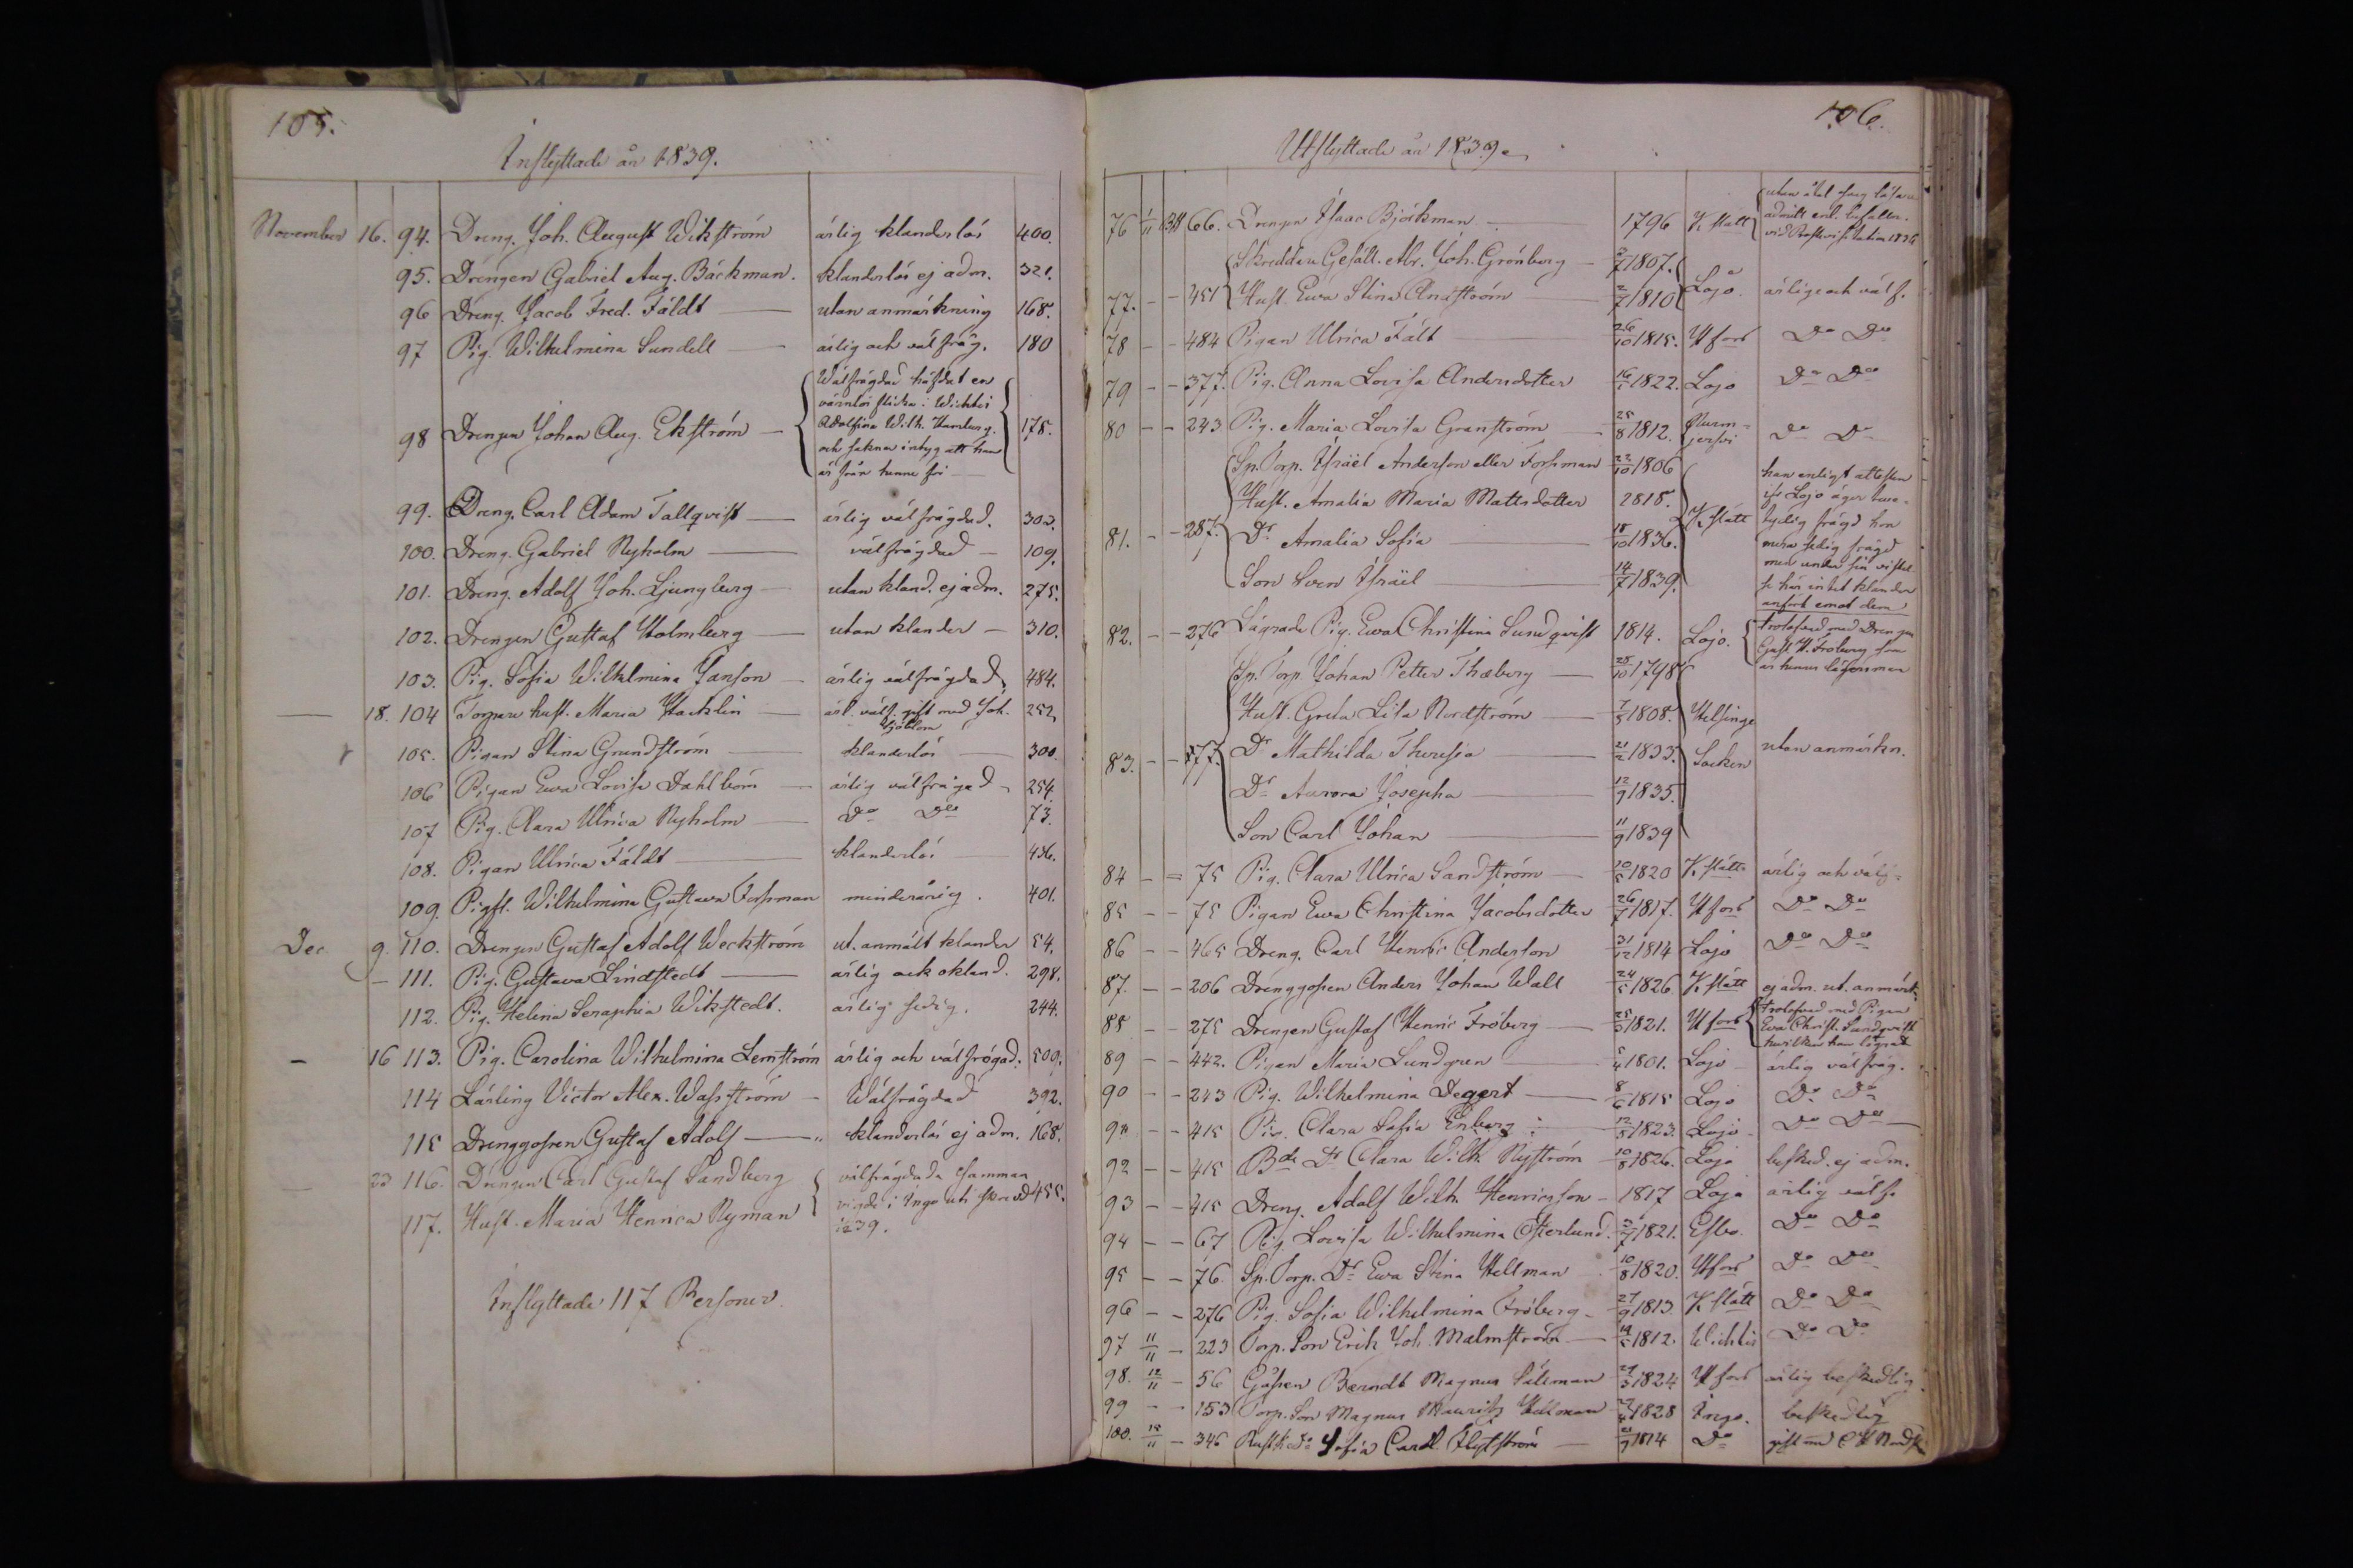 105.
Inflyttade år 1839.
November 16. 94. Dreng. Joh. August Wikström ärlig klanderlös 400.
95. Drengen Gabriel Aug. Bäckman. klanderlös ej adm. 321.
96 Dreng. Jacob Fred. Fäldt utan anmärkning 168.
97 Pig. Wilhelmina Sundell ärlig och välfräg. 180
Wälfrägdad häfdat en
värnlös flicka i Wichtis
Adolfina Wilh. Hamberg.
98 Drengen Johan Aug. Ekström och saknar intyg att han 178.
är från henne fri
99. Dreng. Carl Adam Tallqvist ärlig välfrägdad. 303.
100. Dreng. Gabriel Nyholm välfrägdad 109.
101. Dreng. Adolf Joh. Ljungberg utan kland. ej adm. 275.
102. Drengen Gustaf Holmberg utan klander 310.
103. Pig. Sofia Wilhelmina Janson ärlig välfrägdad 484.
18. 104 Torpare hust. Maria Hacklin ärl. välf. gift med Joh. 252
105. Pigan Stina Grundström klanderlös 300.
106 Pigan Ewa Lovisa Dahlbom ärlig välfrägad 254.
107 Pig. Clara Ulrica Nyholm Do Do 73.
108. Pigan Ulrica Fäldt klanderlös 436.
109. Pigfl. Wilhelmina Gustava Forsman minderårig. 401.
Dec. 9. 110. Drengen Gustaf Adolf Weckström ut. anmält klander 54.
111. Pig. Gustava Lindstedt ärlig och okland. 298.
112. Pig. Helena Seraphia Wikstedt. ärlig sedig. 244.
16 113. Pig. Carolina Wilhelmina Lernström ärlig och välfrägad. 500.
114 Lärling Victor Alex. Wasström Wälfrägdad 392.
115 Drenggossen Gustaf Adolf klanderlös ej adm. 168.
23 116. Drengen Carl Gustaf Sandberg välfrägdade samman
117. Hust. Maria Henrica Nyman vigde i Ingo 455.
1839.
Inflyttade 117 Personer.
106.
Utflyttade år 1839
76 1/11 1838 66. Drengen Isaac Björkman 1796 K slätt
vid Prostvisitation 1836
Skreddare Gesäll. Abr. Joh. Grönberg 7 1807.
77. 451 Hust. Ewa Stina Andström 2/7 1810 Lojo ärlige och välf.
78 484 Pigan Ulrica Fält 26/10 1815. Hfors Do Do
79 377. Pig. Anna Lovisa Andersdotter 16 1822. Lojo Do Do
80 243 Pig. Maria Lovisa Granström 25/8 1812. Nurmijerfvi Do Do
Sp. Torp. Israël Anderson eller Forsman 22/10 1806
Hust. Amalia Maria Mattsdotter 1818.
81. 287. Dr Amalia Sofia 18/10 1836. K slätt
Son Sven Israël 14/7 1839.
han enligt attesten
ifr Lojo äger tvetydig frägd hon
mera sedig frägd
men under sin vistelse
här intet klander
anfört emot dem
82. 276 Lägrade Pig. Ewa Christina Sundqvist 1814. Lojo. trolofvad med Drengen
Gust. H. Fröberg som
är hennes lägersman
Sp. Torp. Johan Petter Thoberg 28/10 1798
Hust. Greta Lisa Nordström 7/8 1808. Helsinge
83. 177. Dr Mathilda Theresia 21/2 1833. Socken utan anmärkn.
Dr Aurora Josepha 12/9 1835.
Son Carl Johan 11/9 1839
84 75 Pig. Clara Ulrica Sandström 10/5 1820 K slätt ärlig och välf.
85 75 Pigan Ewa Christina Jacobsdotter 26/7 1817. Hfors Do Do
86 465 Dreng. Carl Henric Anderson 31/12 1814 Lojo Do Do
87. 206 Drenggossen Anders Johan Wall 24/5 1826 K slätt ej adm. ut. anmärk.
88 275 Drengen Gustaf Henric Fröberg 25/5 1821. Hfors trolofvad med Pigan
Ewa Christ. Sundqvist
hvilken han lägrat
89 442. Pigan Maria Lundgren 5/4 1801. Lojo ärlig välfräg.
90 243 Pig. Wilhelmina Degert 8/6 1815 Lojo Do Do
91 415 Pig. Clara Sofia Enberg 12/8 1823. Lojo Do Do
92 415 Bde Dr Clara Wilh. Nyström 10/8 1826. Lojo besked. ej adm.
93 415 Dreng. Adolf Wilh. Henricsson 1817 Lojo ärlig välf.
94 67 Pig. Lovisa Wilhelmina Österlund. 3/7 1821. Esbo. Do Do
95 76. Sp. Torp. Dr Ewa Stina Hellman 10/8 1820. Hfors Do Do
96 276 Pig. Sofia Wilhelmina Fröberg 27/9 1813 K slätt Do Do
97 11/11 223 Torp. Son Erik Joh. Malmström 14/5 1812. Wichtis Do Do
98. 12/11 56 Gossen Berndt Magnus Sälzman 29/3 1824 Hfors ärlig beskedlig
99 153 Torp. Son Magnus Mauritz Hellman 1828 Ingo. beskedlig
100. 15/11 346 Sofia Carol. Flytström 21/9 1814 Do gift med C H Nordst.